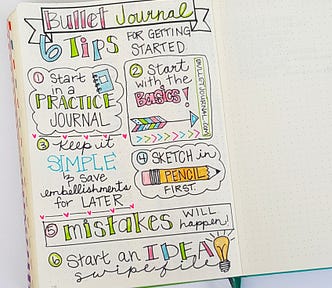 Bullet Journal
6 Tips FOR GETTING
STARTED
1 Start
in a
PRACTICE
JOURNAL
2 Start
with the
Basics!
BULLETJOURNAL.COM
3 Keep it
SIMPLE
& save
embellishments
for LATER
4 SKETCH in
PENCIL
FIRST.
5 mistakes WILL
happen!
6 Start an IDEA
swipe file